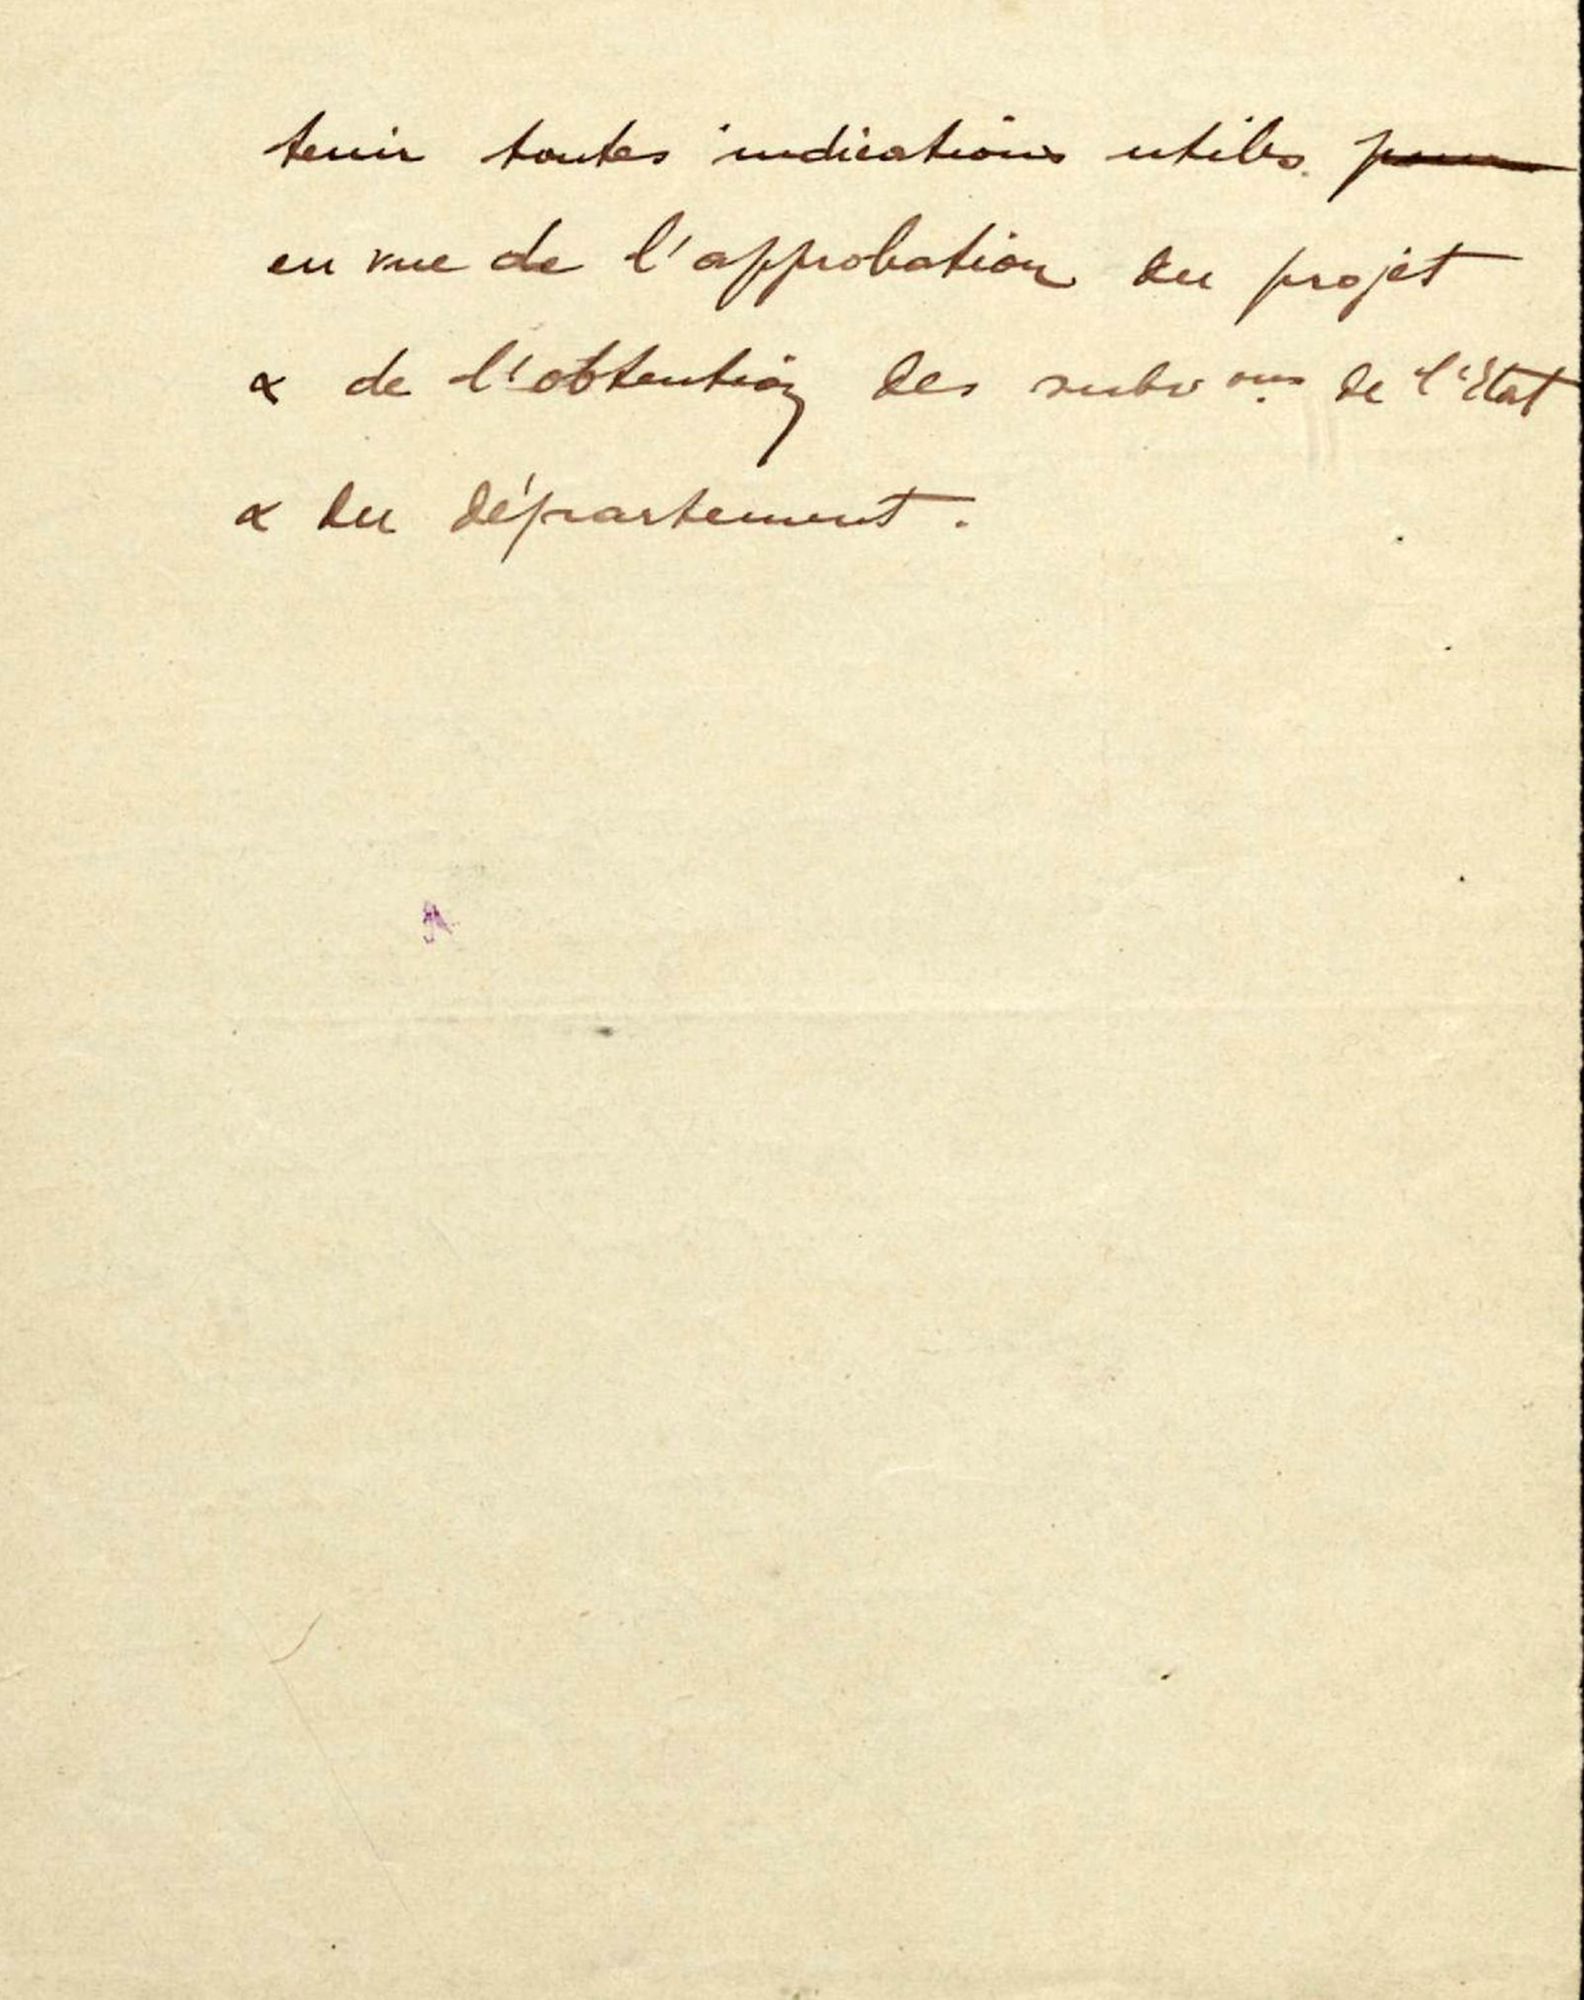 tenir toutes indications utiles pour
en vue de l'approbation du projet
& de l'obtention des subv ons de l'État
& du département.